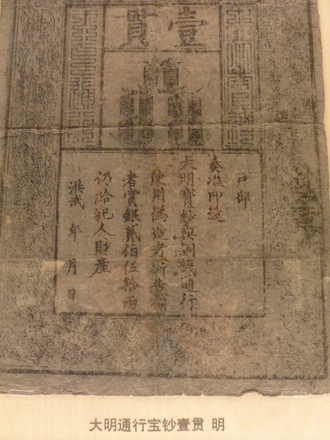 壹貫
户部
奏准印造
大明寶鈔與銅錢通行
使用偽造者斬告捕
者賞銀貳伯伍拾兩
仍給犯人財產
洪武 年 月 日
大明通行宝钞壹贯 明